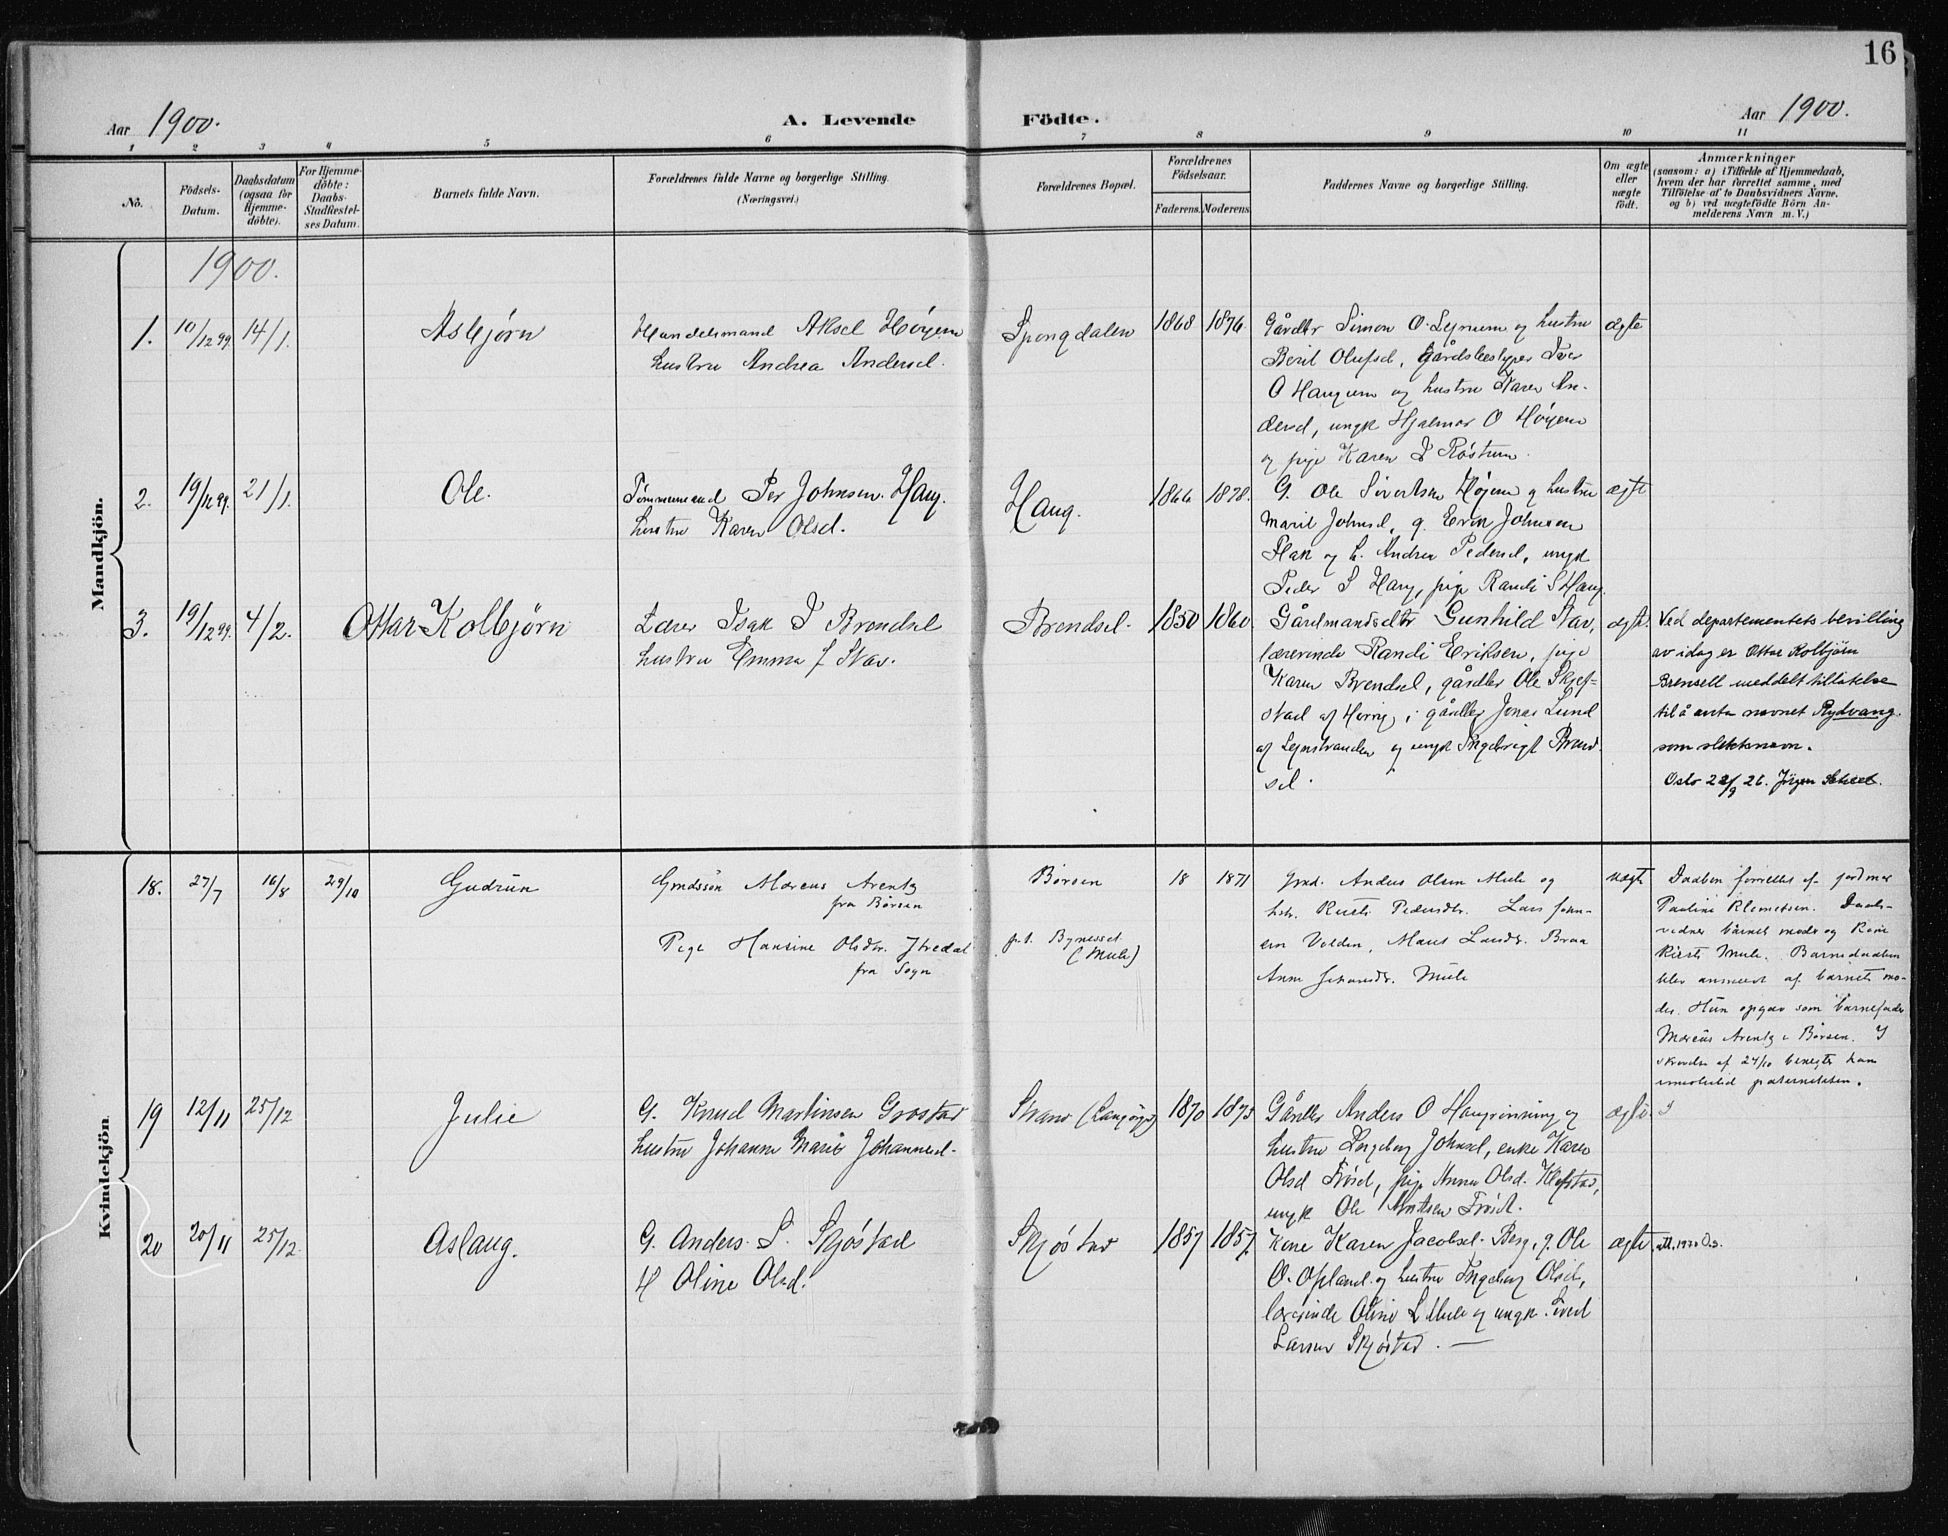 16
Aar 1900.
A. Levende Födte.
Aar 1900.
1 2 3 4 5 6 7 8 9 10 11
No.
Födsels-Datum.
Daabsdatum (ogsaa for Hjemme-döbte).
For Hjemme-döbte: Daabs-Stadfæstel-ses Datum.
Barnets fulde Navn.
Forældrenes fulde Navne og borgerlige Stilling.
(Næringsvei.)
Forældrenes Bopæl.
Forældrenes Födselsaar.
Faderens. Moderens.
Faddernes Navne og borgerlige Stilling.
Om ægte eller uægte födt.
Anmærkninger
(saasom: a) i Tilfælde af Hjemmedaab,
hvem der har forrettet samme, med
Tilföielse af to Daabsvidners Navne.
og b) ved uægtefödte Börn An-
melderens Navn m. V.)
Mandkjön.
1900.
1. 10/12 99. 14/1. Asbjørn
Handelsmand Aksel Høyem
hustru Andrea Andersd.
Spongdalen 1868 1876
Gårdbr Simon O. Leinum og hustru
Beret Olufsd, Gårdsbestyrer Iver
O Haugum og hustru Karen An-
dersd, ungk Hjalmar O Høyem
og pige Karen I Røstum.
ægte
2. 19/12 99. 21/1. Ole.
Tømmermand Per Johnsen Haug.
hustru Karen Olsd.
Haug. 1866 1878.
G. Ole Sivertsen Høyem og hustru
Marit Johnsd, g. Erik Johnsen
Flak og h. Andrea Pedersd, ungk
Peder S Haug, pige Randi S Haug.
ægte
3. 19/12 99. 4/2. Ottar Kolbjørn
Lærer Isak I Brendsel
hustru Emma J Stav.
Brendsel. 1850 1860.
Gårdmandsdtr Gunhild Stav,
lærerinde Randi Eriksen, pige
Karen Brendsel, gårdbr Ole Skjef-
stad af Horrig, gårdbr Jonas Lund
af Leinstranden og ungk Ingebrigt Brend-
sel.
ægte.
Ved departementets bevilling
av idag er Ottar Kolbjörn
Brensell meddelt tillatelse
til å anta navnet Rydvang
som slektsnavn.
Oslo 28/9 26. Jörgen
Kvindekjön
18. 27/7 16/8 29/10 Gudrun
Grndssön Marcus Arentz
fra Børsen
Pige Hansine Olsdtr.
fra Sogn
Børsen
p.t. Bynesset
(Mule)
18 1871
Grnd. Anders Olsen Mule og
hstr. Kirsti Pedersdtr. Lars John-
sen Volden, Marit Larsdtr. Braa
Anne Johansdr. Mule
uægte
Daaben forrettet af jordmor
Pauline Klemetsen. Daabs-
vidner barnets moder og Kone
Kirsti Mule. Barnedaaben
blev anmeldt af barnets mo-
der. Hun opgav som barnefader
Marcus Arentz i Børsen. I
skrivelse af 24/10 benegter han
imidlertid paterniteten.
19 12/11 25/12 Julie
G. Knud Martinsen Grostad
hustru Johanna Marie Johannesd.
Strand (Langørgen) 1870 1873
Gårdbr Anders O Haugrønning og
hustru Ingeborg Johnsd, enke Karen
Olsd Frøset, pige Anna Olsd. Klefstad,
ungk Ole Arntsen Frøset.
ægte
20 20/11 25/12 Aslaug.
G. Anders L. Skjøstad
H Oline Olsd.
Skjøstad 1857 1857.
Kone Karen Jacobsd. Berg, g. Ole
O. Opland og hustru Ingeborg Olsd,
lærerinde Oline L Mule og ungk. Sivert
Larsen Skjøstad.
ægte
att. 1930